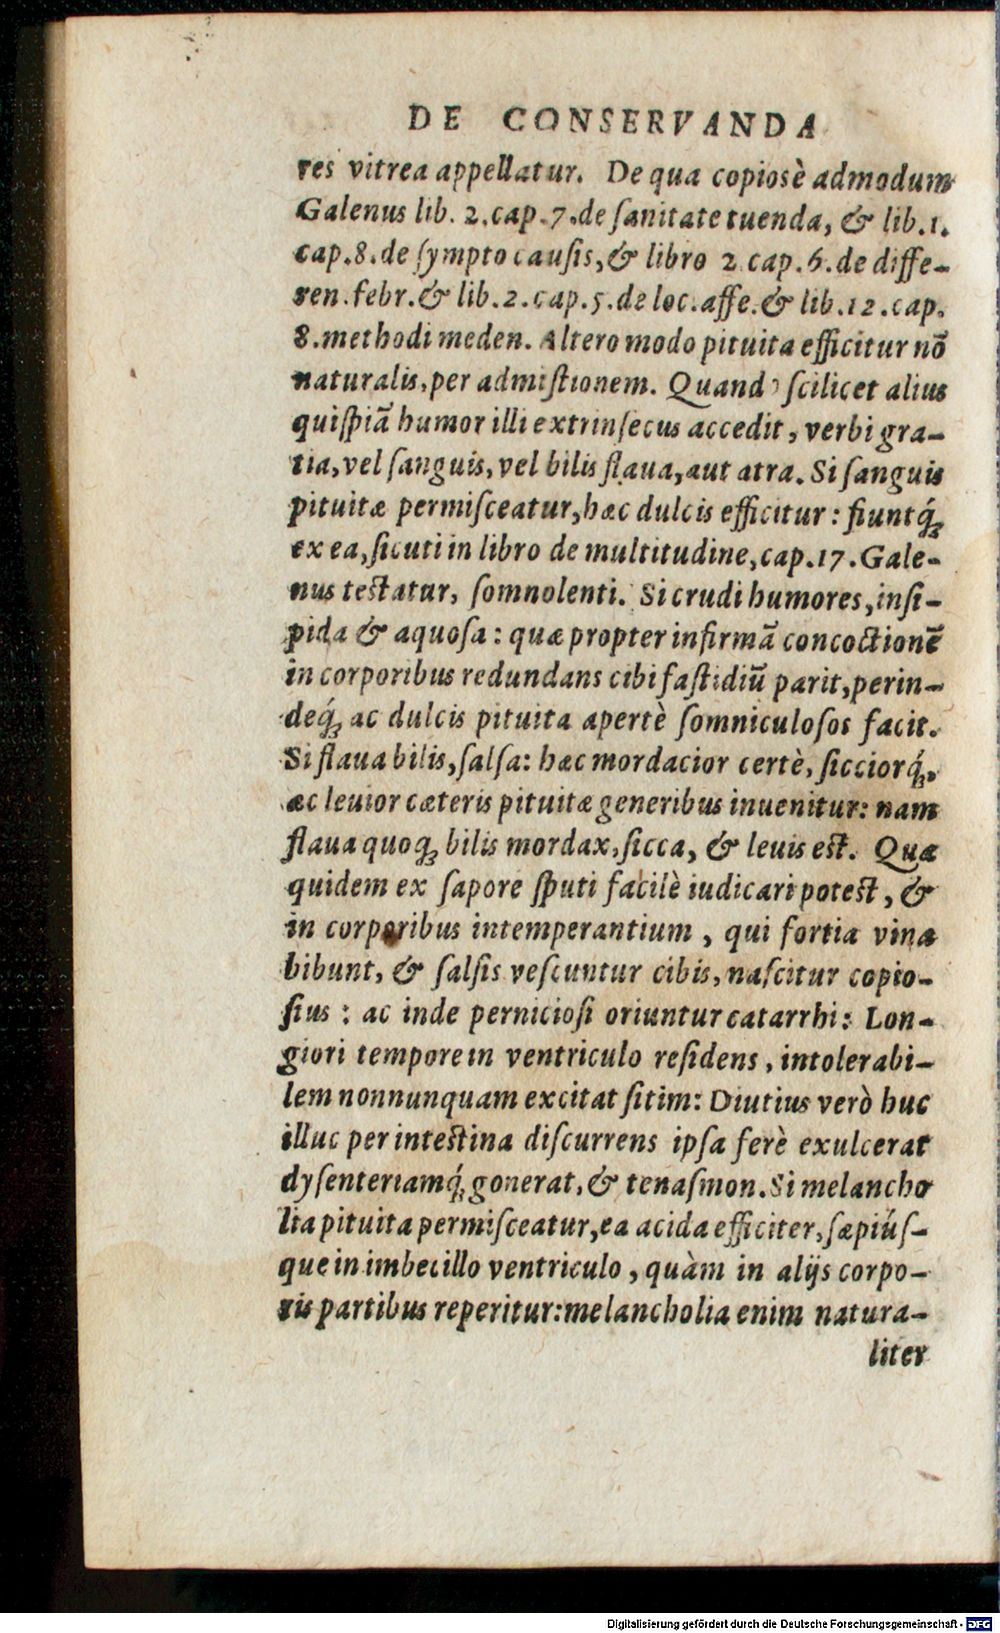 DE CONSERVANDA
res vitrea appellatur. De qua copiosè admodum
Galenus lib. 2.cap.7.de ſanitate tuenda, & lib.1.
cap.8.de ſympto cauſis,& libro 2 cap.6.de diffe-
ren.febr.& lib.2.cap.5.de loc.affe.& lib.12.cap.
8.methodi meden. Altero modo pituita efficitur nō
naturalis,per admiſtionem. Quando ſcilicet alius
quiſpiā humor illi extrinſecus accedit, verbi gra-
tia,vel ſanguis,vel bilis flaua,aut atra. Si ſanguis
pituitæ permiſceatur,hæc dulcis efficitur: fiuntq́;
ex ea,ſicuti in libro de multitudine,cap.17.Gale-
nus teſtatur, ſomnolenti. Si crudi humores,inſi-
pida & aquoſa: quæ propter infirmā concoctionē
in corporibus redundans cibi faſtidiū parit,perin-
deq́; ac dulcis pituita apertè ſomniculoſos facit.
Si flaua bilis,ſalſa: hæc mordacior certè, ſicciorq́;,
ac leuior cæteris pituitæ generibus inuenitur: nam
flaua quoq; bilis mordax,ſicca, & leuis eſt. Quæ
quidem ex ſapore ſputi facilè iudicari poteſt, &
in corporibus intemperantium , qui fortia vina
bibunt, & ſalſis veſcuntur cibis, naſcitur copio-
ſius : ac inde pernicioſi oriuntur catarrhi: Lon-
giori tempore in ventriculo reſidens, intolerabi-
lem nonnunquam excitat ſitim: Diutius verò huc
illuc per inteſtina diſcurrens ipſa ferè exulcerat
dyſenteriamq́; gonerat,& tenaſmon.Si melancho
lia pituita permiſceatur,ea acida efficiter,ſæpiúſ-
que in imbecillo ventriculo , quàm in alijs corpo-
ris partibus reperitur:melancholia enim natura-
liter
Digitalisierung gefördert durch die Deutsche Forschungsgemeinschaft - DFG